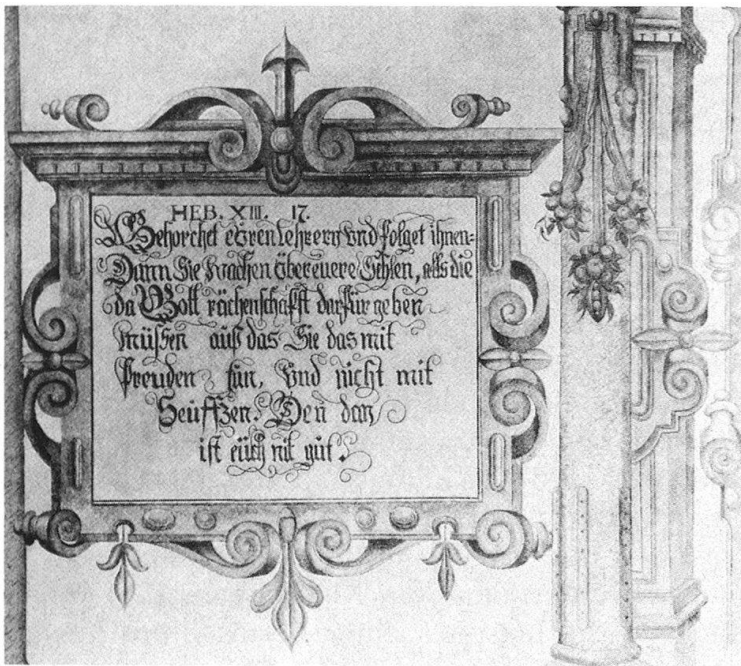 HEB. XIII. 17.
Gehorchet eǒren Lehrern vnd folget ihnen:
Dann Sie wachen ǒber euere Sehlen, als die
da Gott rächenschafft darfür geben
müssen auff das Sie das mit
freuden tün, Vnd nicht mit
Seuffzen. Den das
ist eüch nit güt.